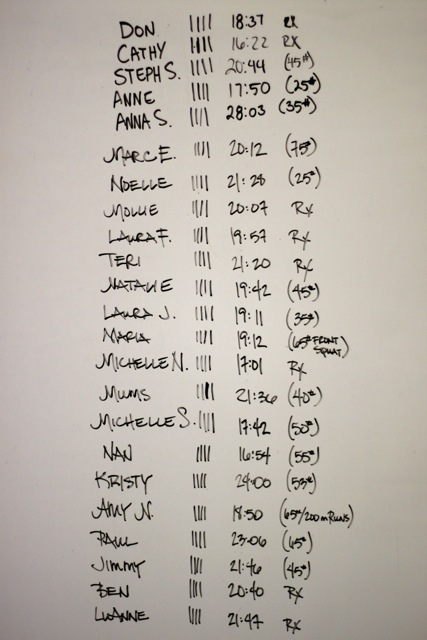 DON |||| 18:37 RX
CATHY |||| 16:22 RX
STEPH S. |||| 20:44 (45#)
ANNE |||| 17:50 (25#)
ANNA S. |||| 28:03 (35#)
MARC E. |||| 20:12 (75#)
NOELLE |||| 21:28 (25#)
MOLLIE |||| 20:07 RX
LAURA F. |||| 19:57 RX
TERI |||| 21:20 RX
NATALIE |||| 19:42 (45#)
LAURA J. |||| 19:11 (35#)
MARIA |||| 19:12 (65# FRONT
SQUAT)
MICHELLE N. |||| 17:01 RX
MUMS |||| 21:36 (40#)
MICHELLE S. |||| 17:42 (50#)
NAN |||| 16:54 (55#)
KRISTY |||| 24:00 (53#)
AMY N. |||| 18:50 (65#/200m RUNS)
PAUL |||| 23:06 (65#)
JIMMY |||| 21:46 (45#)
BEN |||| 20:40 RX
LUANNE |||| 21:47 RX